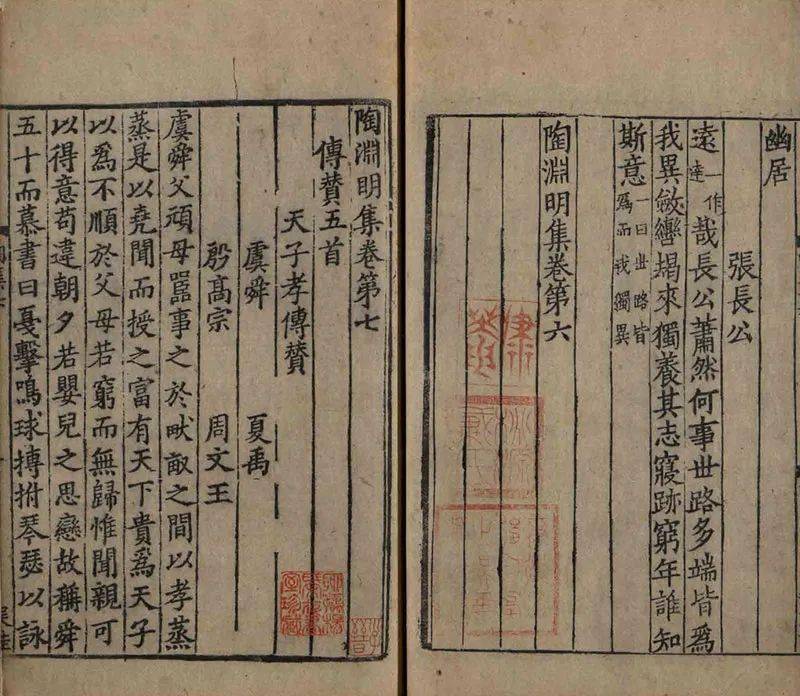 幽居
張長公
遠一作達哉長公蕭然何事世路多端皆爲
我異斂轡朅來獨養其志寢跡窮年誰知
斯意一曰世路皆爲而我獨異
陶淵明集卷第六
陶淵明集卷第七
傳贊五首
天子孝傳贊
虞舜 夏禹
殷髙宗 周文王
虞舜父頑母嚚事之於畎畝之間以孝蒸
蒸是以堯聞而授之富有天下貴爲天子
以爲不順於父母若窮而無歸惟聞親可
以得意苟違朝夕若嬰兒之思戀故稱舜
五十而慕書曰戛擊鳴球搏拊琴瑟以詠